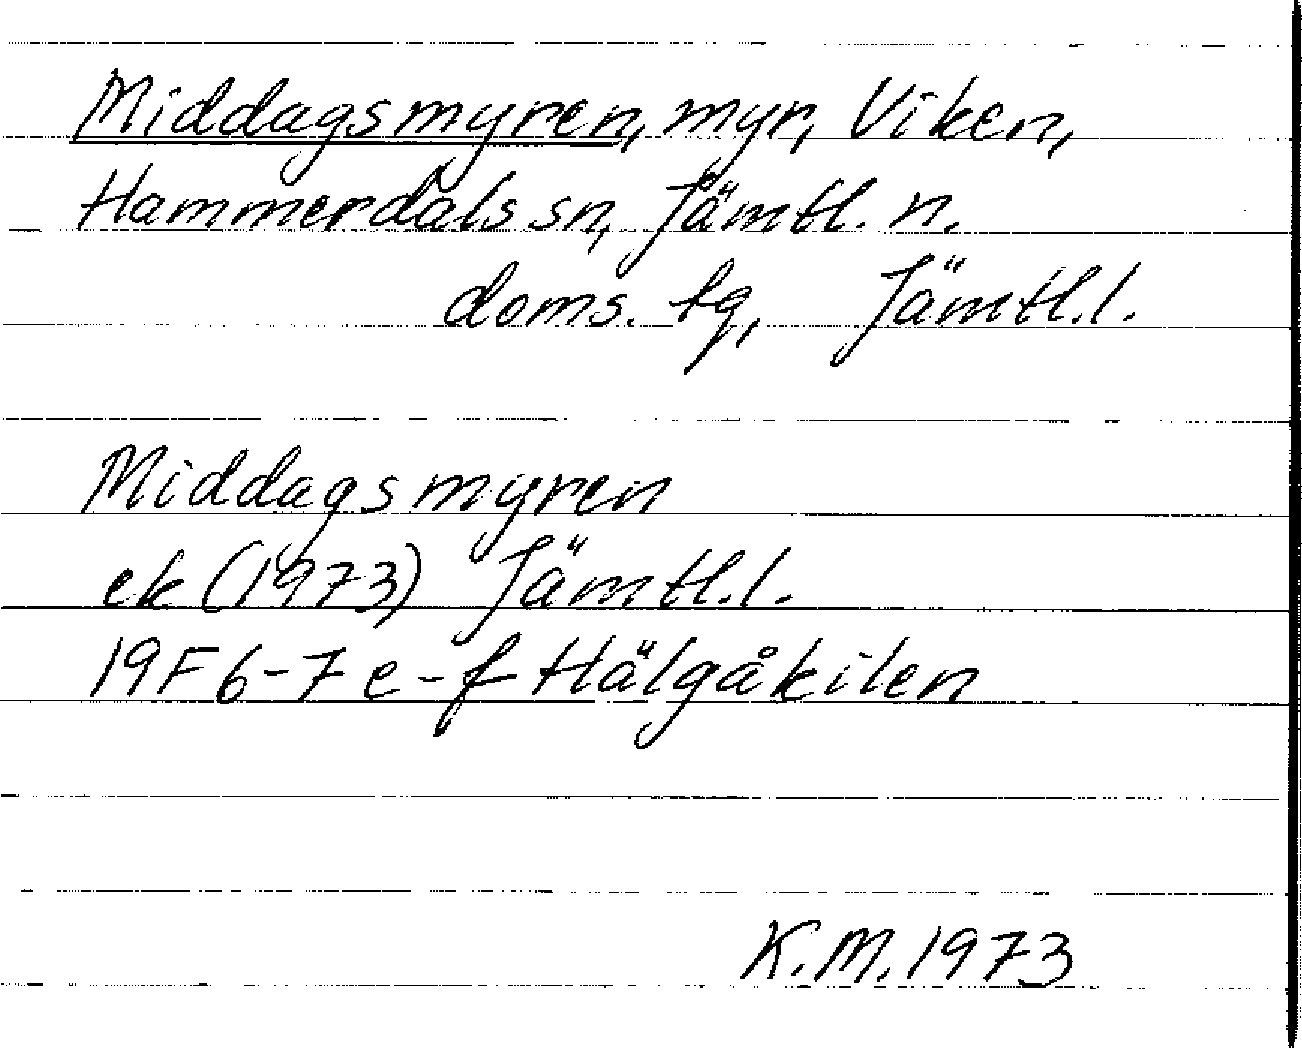 Middagsmyren, myr, Viken,
Hammerdals sn, Jämtl. n.
doms. tg, Jämtl.l.
Middagsmyren
ek (1973) Jämtl.l.
19F 6-7 e-f Hälgåkilen
K.M. 1973